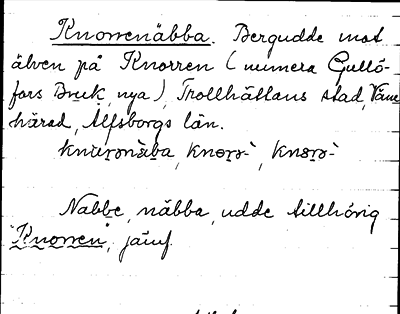 Knorrenäbba. Bergudde mot
älven på Knorren (numera Gullö-
fors Bruk, nya), Trollhättans stad, Väne
härad, Älfsborgs län.
Nabbe, näbba, udde tillhörig
"Knorren", jämf.